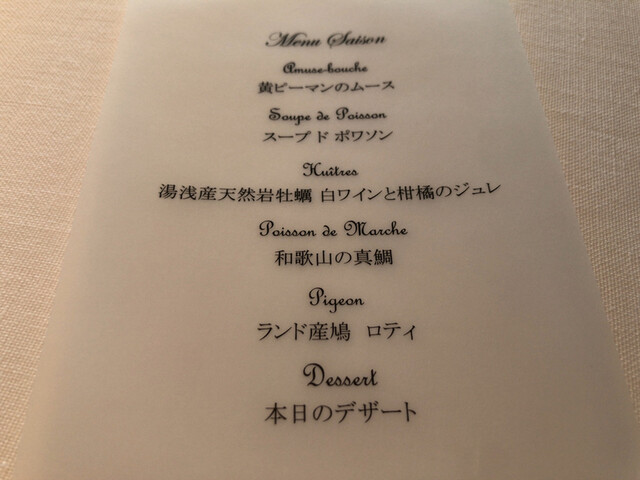 Menu Saison
Amuse-bouche
黄ピーマンのムース
Soupe de Poisson
スープ ド ポワソン
Huîtres
湯浅産天然岩牡蠣 白ワインと柑橘のジュレ
Poisson de Marche
和歌山の真鯛
Pigeon
ランド産鳩 ロティ
Dessert
本日のデザート